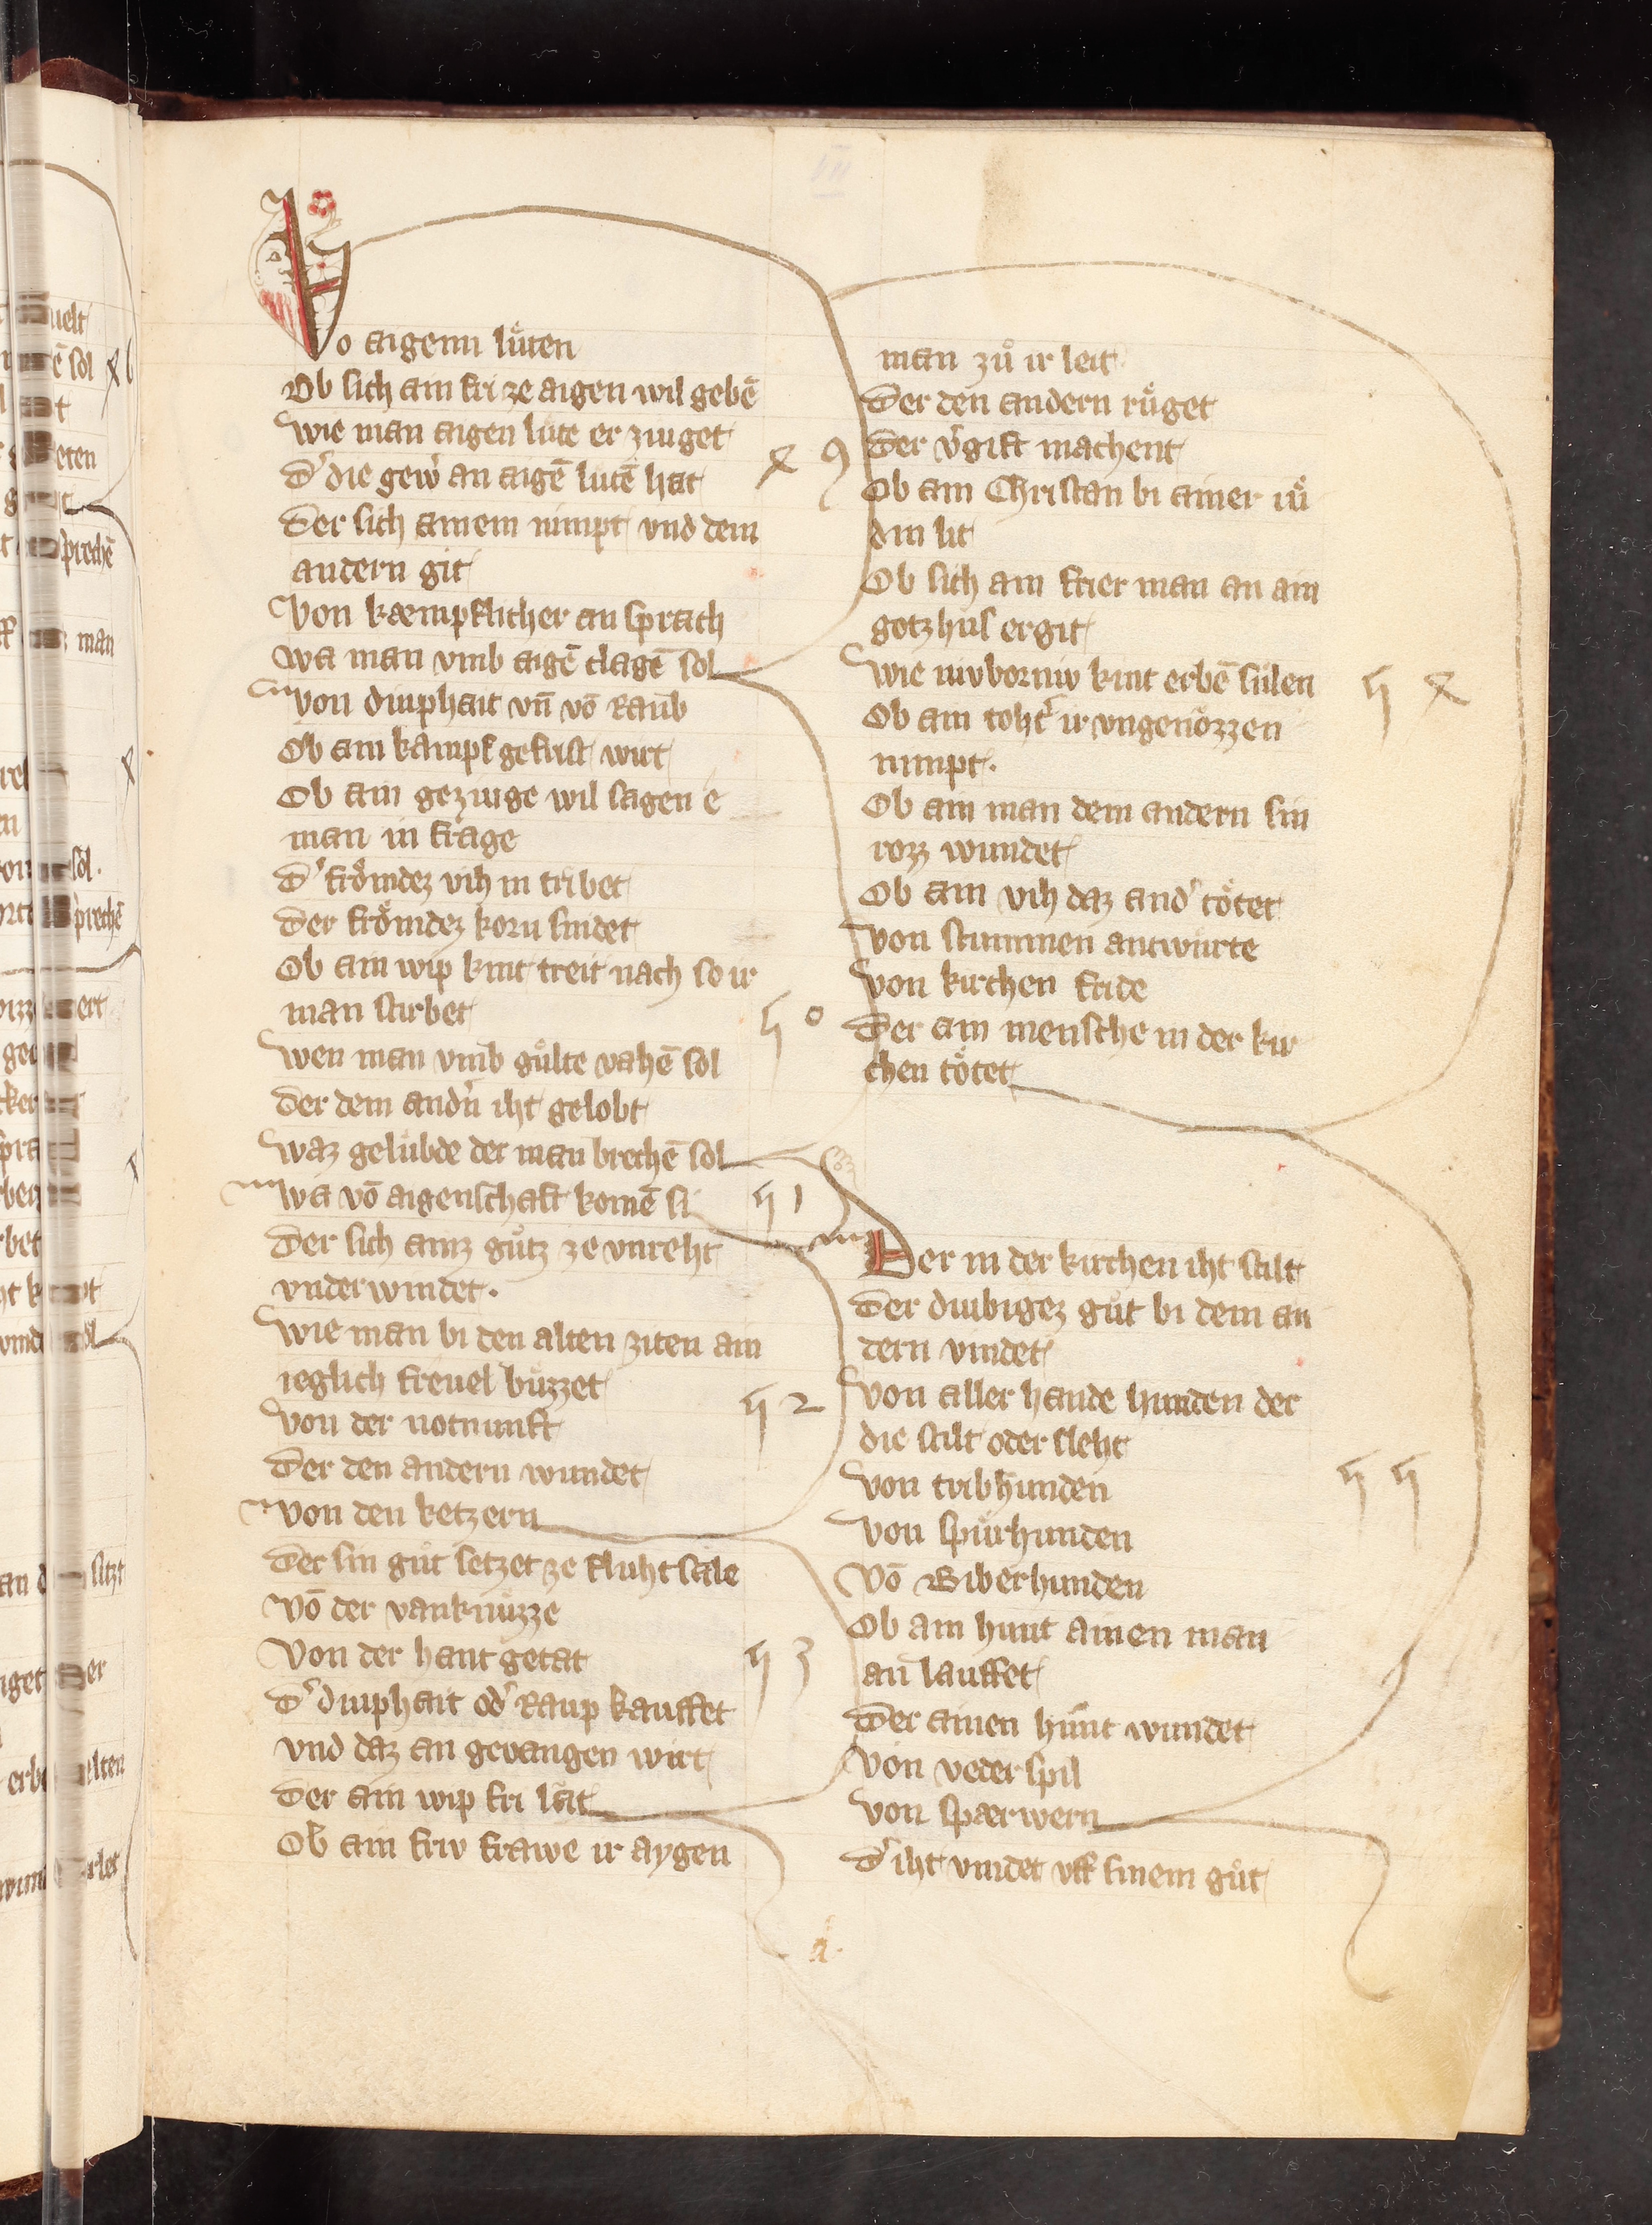 Vo aigenn lüten
Ob sich ain fri ze aigen wil gebē
wie man aigen lüte er ziuget
d' die gew' an aigē lutē hat
Der sich ainem nimpt vnd dem
andern git
Von kæmpflicher an sprach
wa man vmb aigē clagē sol
von diuphait vn̄ vō Raub
Ob ain kampf gefrist wirt
Ob ain geziuge wil sagen e
man in frage
d' frömdez vih in tribet
Der frömdez korn snidet
Ob ain wip kint treit nach so ir
man stirbet
wen man vmb gülte vahē sol
der dem andn' iht gelobt
waz gelübde der man brechē sol
wa vō aigenschaft komē si
Der sich ainz gůtz ze vnreht
vnderwindet.
wie man bi den alten ziten ain
ieglich freuel bůzzet
Von der notnunft
Der den andern wundet
von den ketzern
Der sin gůt setzet ze fluhtsale
Vō der vanknüzze
Von der hant getat
d' diuphait od' Raup kauffet
vnd daz an gevangen wirt
Der ain wip fri lāt
Ob ain friv frawe ir aygen
man zů ir leit
Der den andern růget
Der v'gift machent
Ob ain Christan bi ainer iů
din lit
Ob sich ain frier man an ain
gotzhus ergit
wie nivborniv kint erbē sülen
Ob ain toht' ir vngenözzen
nimpt.
Ob ain man dem andern sin
rozz wundet
Ob ain vih daz and' tötet
Von stummen antwürte
Von kirchen fride
Der ain mensche in der kir
chen tötet
Der in der kirchen iht stilt
Der diubigez gůt bi dem an
dern vindet
Von aller hande hunden der
die stilt oder sleht
Von tribhunden
Von spürhunden
Vō Biberhunden
Ob ain hunt ainen man
an lauffet
Der ainen hunt wundet
Von vederspil
Von spærwern
d' iht vindet vff sinem gůt